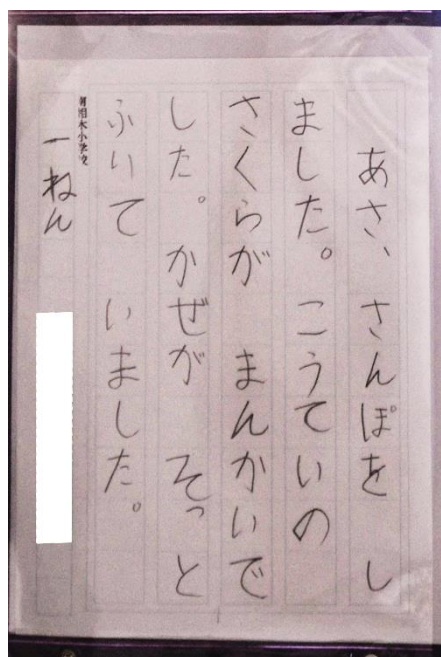 あさ、さんぽを し
ました。こうていの
さくらが まんかいで
した。かぜが そっと
ふいて いました。
一ねん